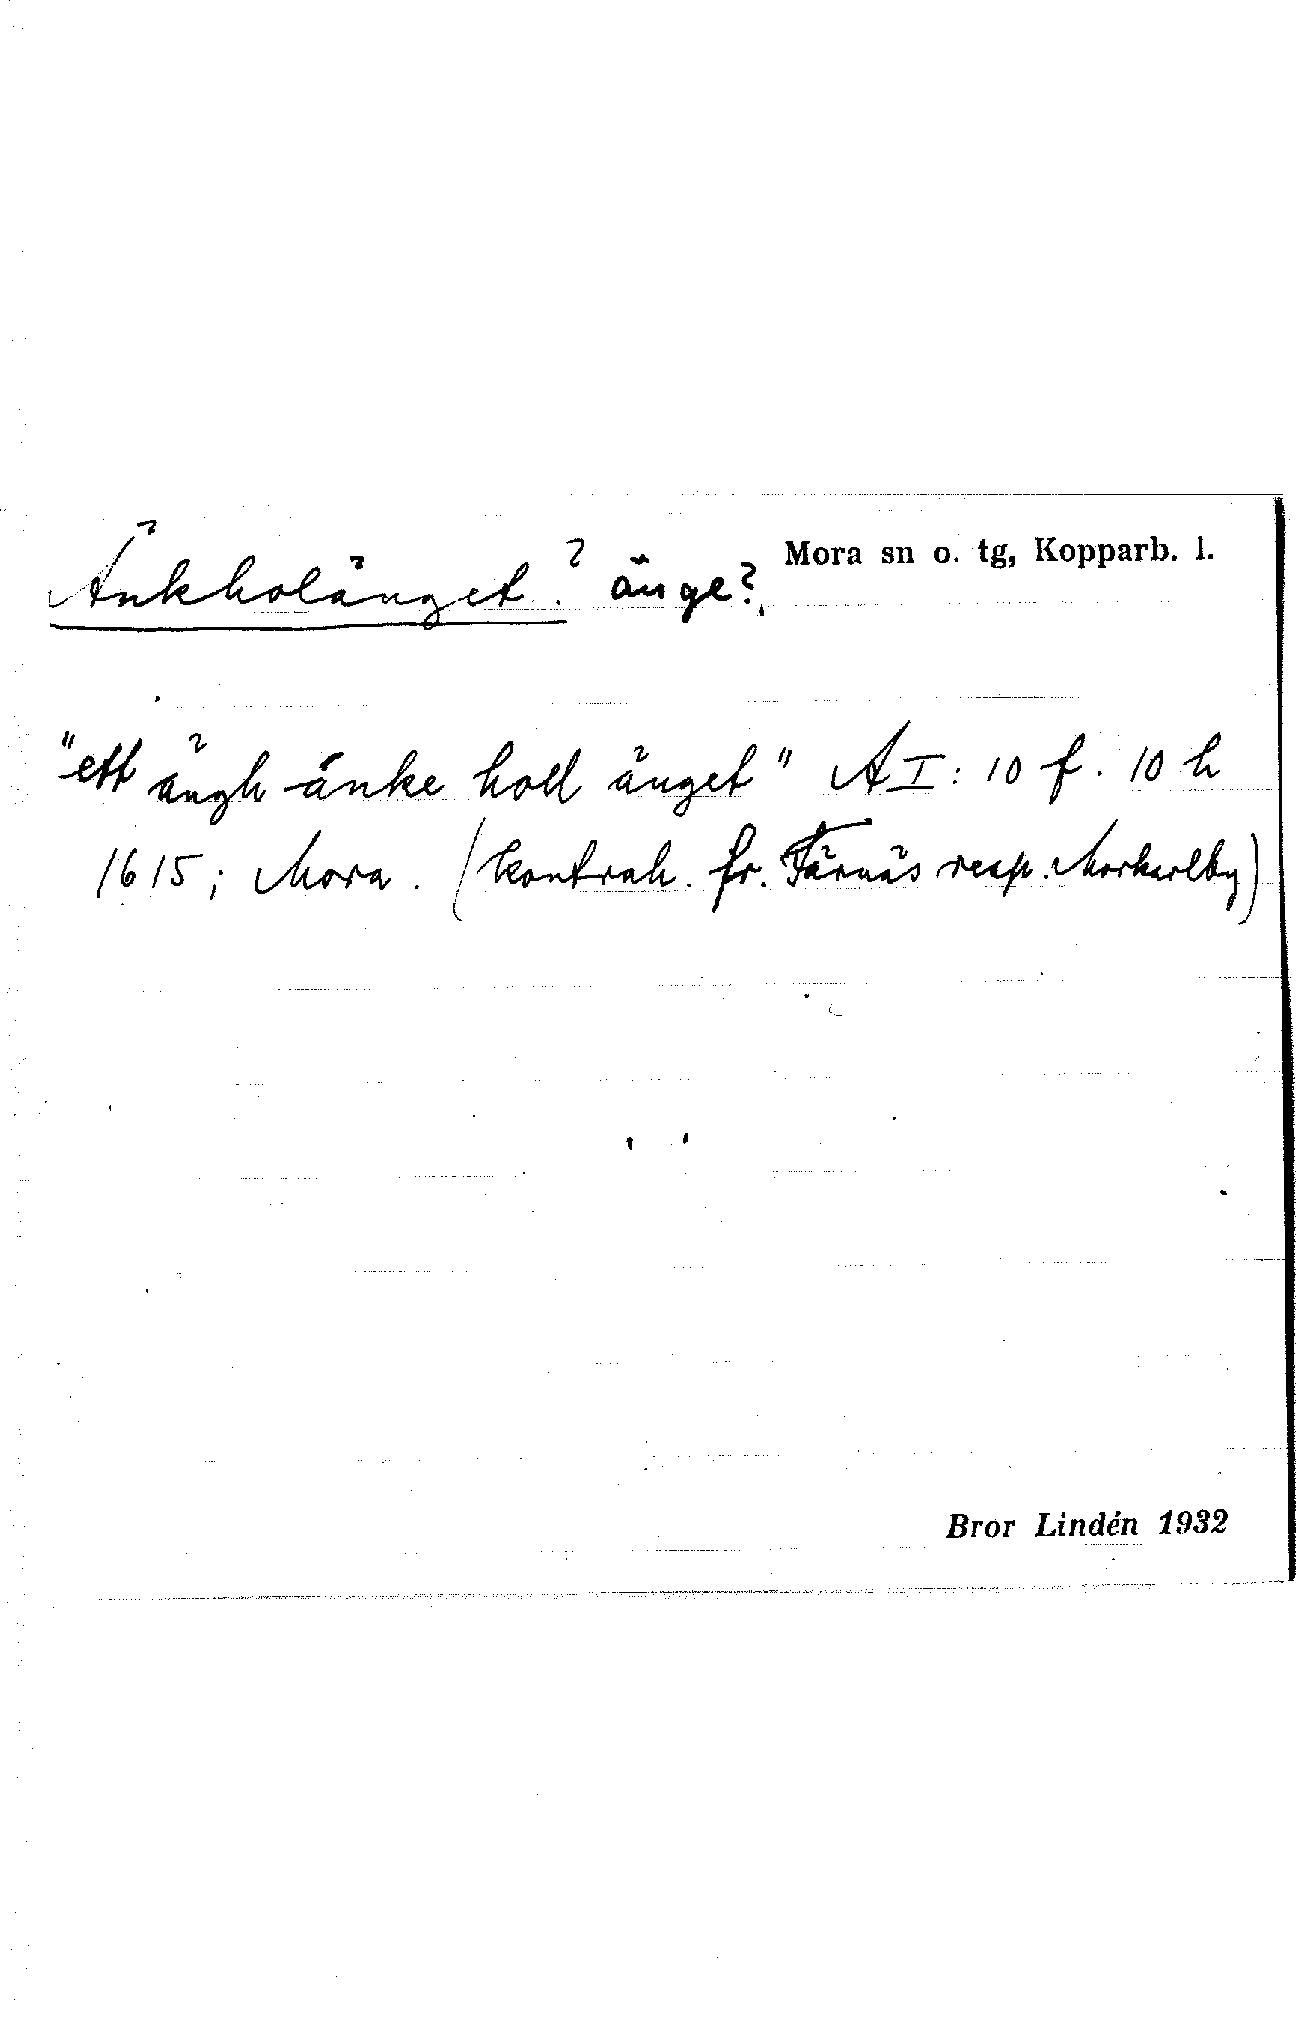 Änkholänget? änge? Mora sn o. tg, Kopparb. l.
"ett ängh änke holl änget" A I: 10 f. 10 h
1615; Mora. (kontrah. fr. Färnäs resp. Morkarlby)
Bror Lindén 1932